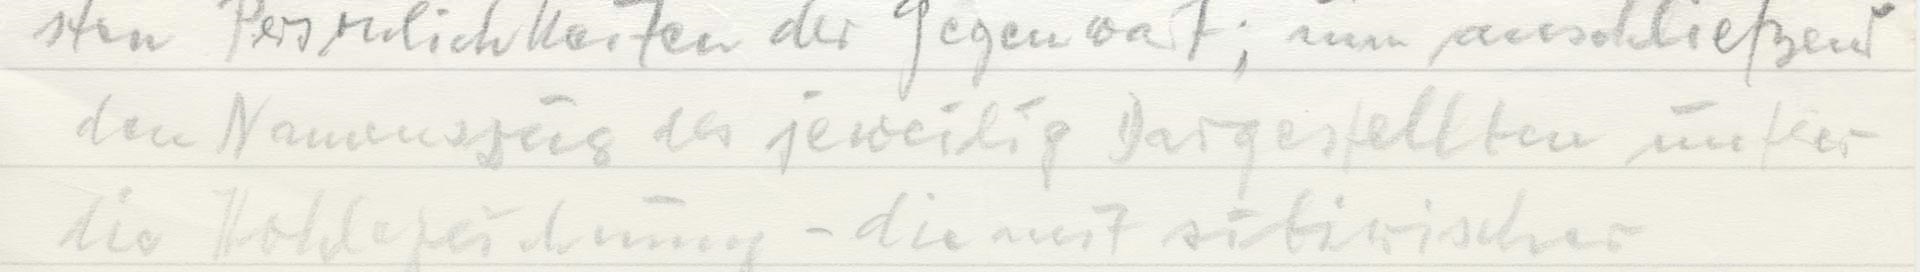 sten Persönlichkeiten der Gegenwart; um anschließend
den Namenszug des jeweilig Dargestellten unter
die Kohlezeichnung – die mit sibirischer